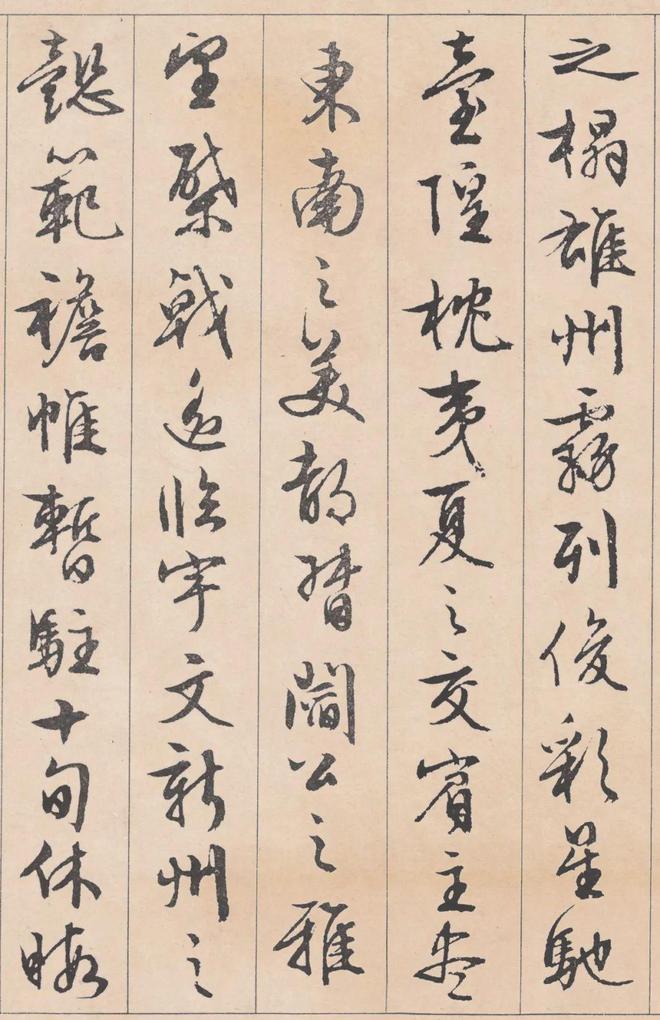 之榻雄州霧列俊彩星馳
臺隍枕夷夏之交賓主盡
東南之美都督閻公之雅
望棨戟遥臨宇文新州之
懿範襜帷暫駐十旬休暇